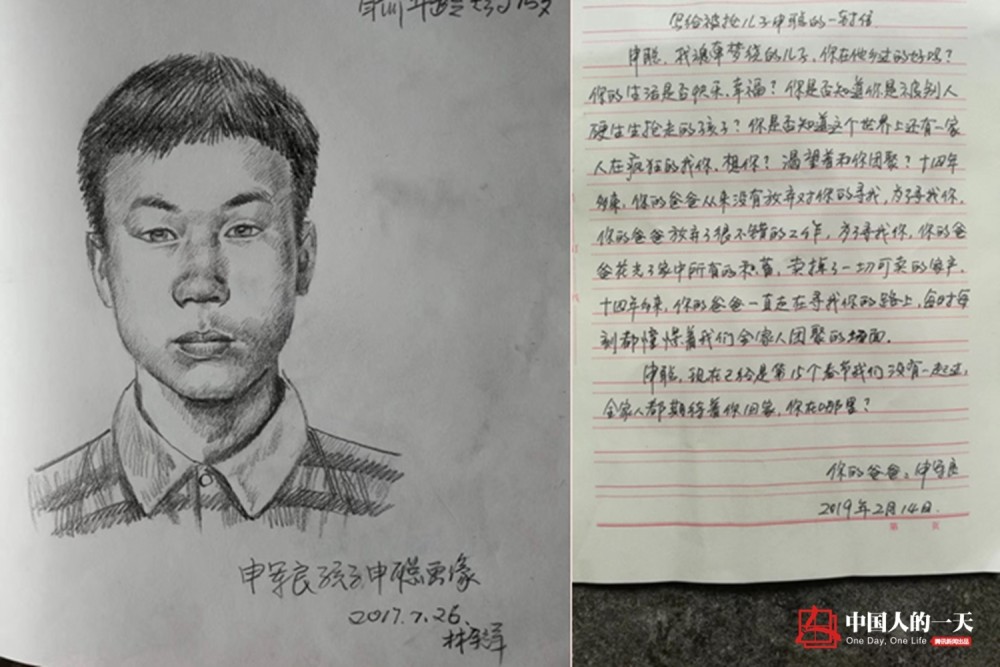 申军良孩子申聪画像
2017.7.26.
林宇辉
写给被抢儿子申聪的一封信
申聪，我魂牵梦绕的儿子，你在他乡过的好吗？
你的生活是否快乐、幸福？你是否知道你是被别人
硬生生抢走的孩子？你是否知道这个世界上还有一家
人在疯狂的找你，想你？渴望着和你团聚？十四年
来，你的爸爸从来没有放弃对你的寻找，为了寻找你，
你的爸爸放弃了很不错的工作，为了寻找你，你的爸
爸花光了家中所有的积蓄，卖掉了一切可卖的家产，
十四年来，你的爸爸一直走在寻找你的路上，每时每
刻都憧憬着我们全家人团聚的场面。
申聪，现在已经是第15个春节我们没有一起过，
全家人都期待着你回家，你在哪里？
你的爸爸：申军良
2019年2月14日.
第 页
中国人的一天
One Day, One Life 腾讯新闻出品